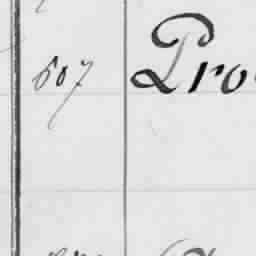 607 Pro